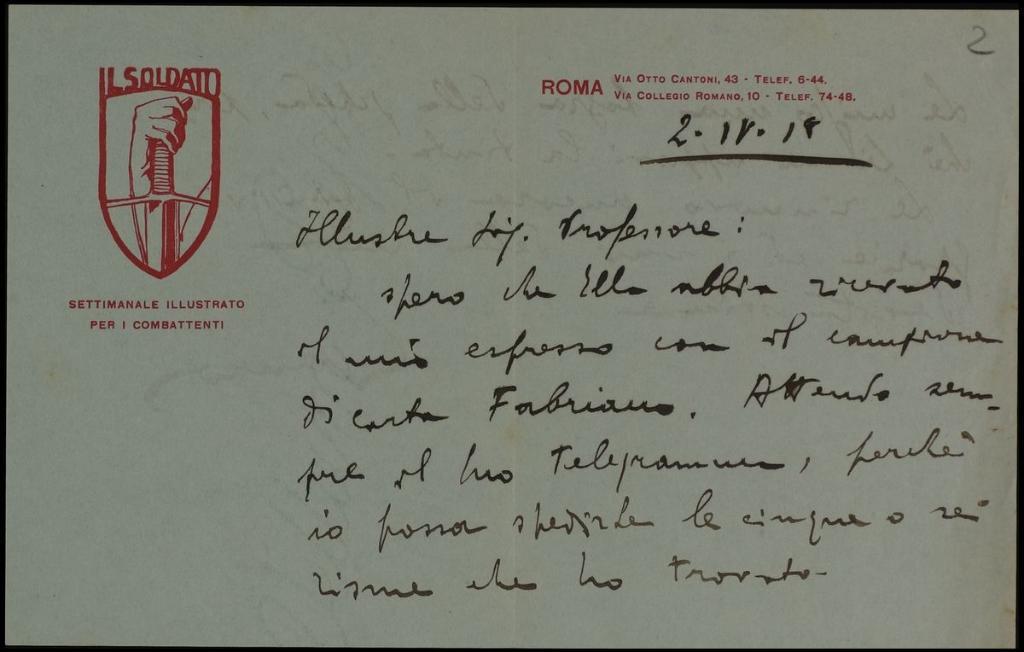 2
IL SOLDATO
SETTIMANALE ILLUSTRATO
PER I COMBATTENTI
ROMA VIA OTTO CANTONI, 43 - TELEF. 6-44.
VIA COLLEGIO ROMANO, 10 - TELEF. 74-48.
2. IV. 18
Illustre Sig. Professore:
spero che Ella abbia ricevuto
il mio espresso con il campione
di carta Fabriano. Attendo sem-
pre il suo telegramma, perchè
io possa spedirle le cinque o sei
risme che ho trovato.